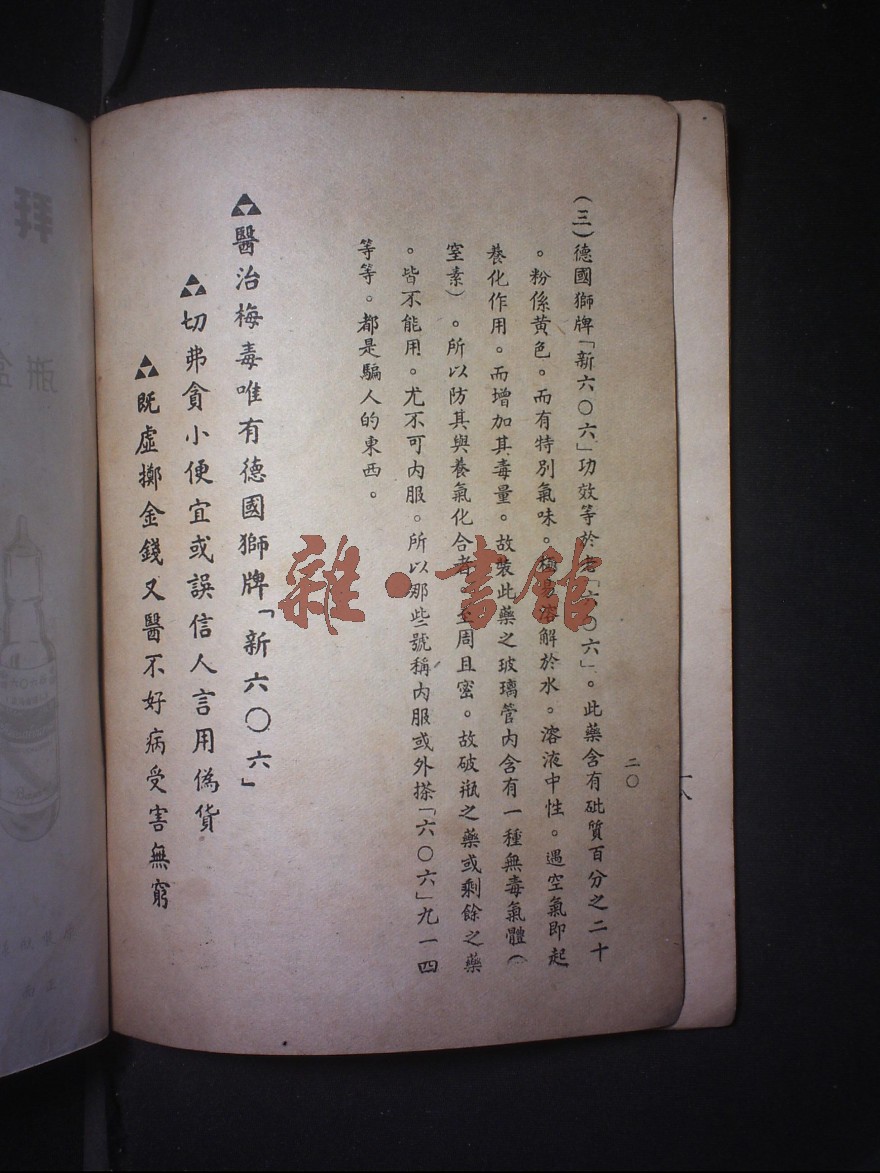 二〇
(三)德國獅牌「新六〇六」功效等於老「六〇六」。此藥含有砒質百分之二十
。粉係黃色。而有特別氣味。極易溶解於水。溶液中性。遇空氣即起
養化作用。而增加其毒量。故裝此藥之玻璃管內含有一種無毒氣體(
窒素)。所以防其與養氣化合者。至周且密。故破瓶之藥或剩餘之藥
。皆不能用。尤不可內服。所以那些號稱內服或外搽「六〇六」九一四
等等。都是騙人的東西。
醫治梅毒唯有德國獅牌「新六〇六」
切弗貪小便宜或誤信人言用偽貨
既虛擲金錢又醫不好病受害無窮
雜·書館
拜
瓶